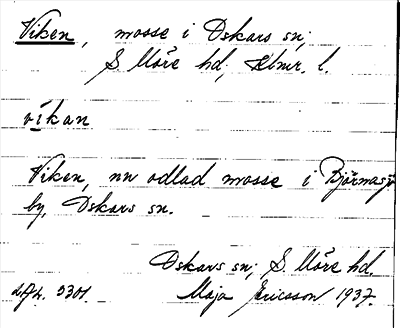 Viken, mosse i Oskars sn;
S Möre hd, Klmr. l.
vikan
Viken, nu odlad mosse i Björnasjö
by, Oskars sn.
Oskars sn; S. Möre hd.
Maja Ericsson 1937.